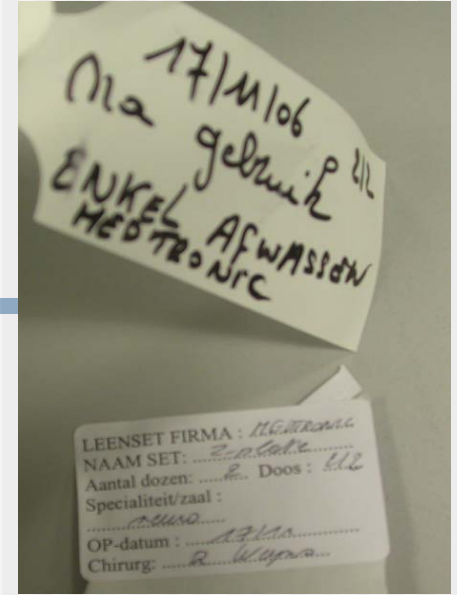 17/11/06
Na gebruik 2/2
ENKEL AFWASSEN
MEDTRONIC
LEENSET FIRMA : MEDTRONIC
NAAM SET:
Aantal dozen: 2 Doos : 2/2
Specialiteit/zaal :
neuro
OP-datum : 17/11
Chirurg: